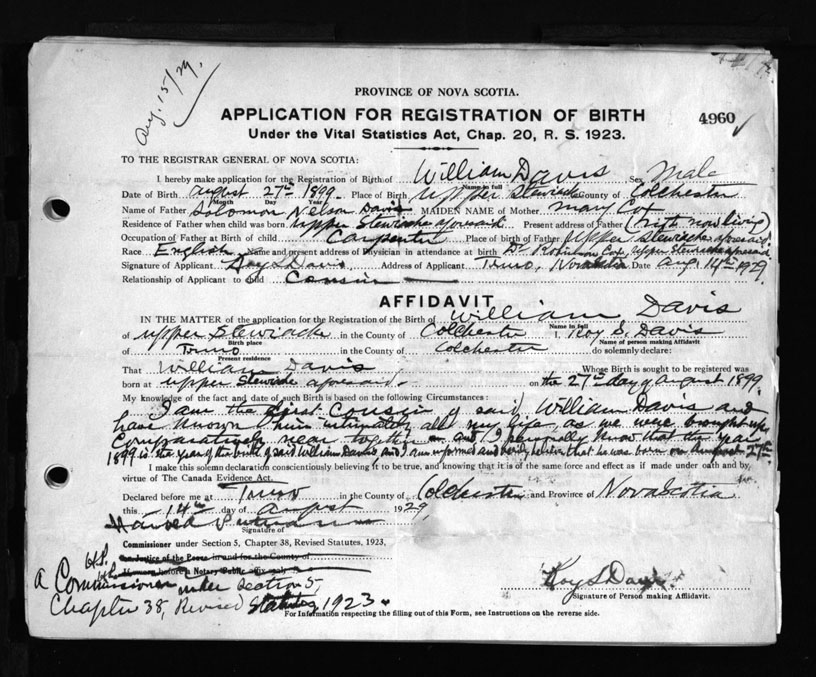 Aug. 15/29.
PROVINCE OF NOVA SCOTIA.
APPLICATION FOR REGISTRATION OF BIRTH
4960
Under the Vital Statistics Act, Chap. 20, R. S. 1923.
TO THE REGISTRAR GENERAL OF NOVA SCOTIA:
I hereby make application for the Registration of Birth of William Davis Sex Male
Name in full
Date of Birth August 27th 1899 Place of Birth Upper Stewiacke County of Colchester
Month Day Year
Name of Father Solomon Nelson Davis MAIDEN NAME of Mother Mary Cox
Residence of Father when child was born Upper Stewiacke aforesaid Present address of Father (Not now living)
Occupation of Father at Birth of child Carpenter Place of birth of Father Upper Stewiacke aforesaid
Race English Name and present address of Physician in attendance at birth Dr Robinson Cox, Upper Stewiacke aforesaid
Signature of Applicant Roy S Davis Address of Applicant Truro, Nova Scotia Date Aug 14th 1929
Relationship of Applicant to child Cousin
AFFIDAVIT
IN THE MATTER of the application for the Registration of the Birth of William Davis
Name in full
of Upper Stewiacke in the County of Colchester I, Roy S. Davis
Birth place Name of person making Affidavit
of Truro in the County of Colchester do solemnly declare:
Present residence
That William Davis Whose Birth is sought to be registered was
born at Upper Stewiacke aforesaid on the 27th day of August 1899
My knowledge of the fact and date of such Birth is based on the following Circumstances:
I am the first Cousin of said William Davis and
have known him intimately all my life, as we were brought up
Comparatively near together and I personally know that the year
1899 is the year of the birth of said William Davis and I am informed and verily believe that he was born on August 27th
I make this solemn declaration conscientiously believing it to be true, and knowing that it is of the same force and effect as if made under oath and by
virtue of The Canada Evidence Act.
Declared before me at Truro in the County of Colchester and Province of Nova Scotia
this 14th day of August 1929
Harold
Signature of
Commissioner under Section 5, Chapter 38, Revised Statutes, 1923,
or Justice of the Peace in and for the County of
or Notary Public
a Commissioner under Section 5,
Chapter 38, Revised Statutes, 1923.
Roy S Davis
Signature of Person making Affidavit.
For Information respecting the filling out of this Form, see Instructions on the reverse side.